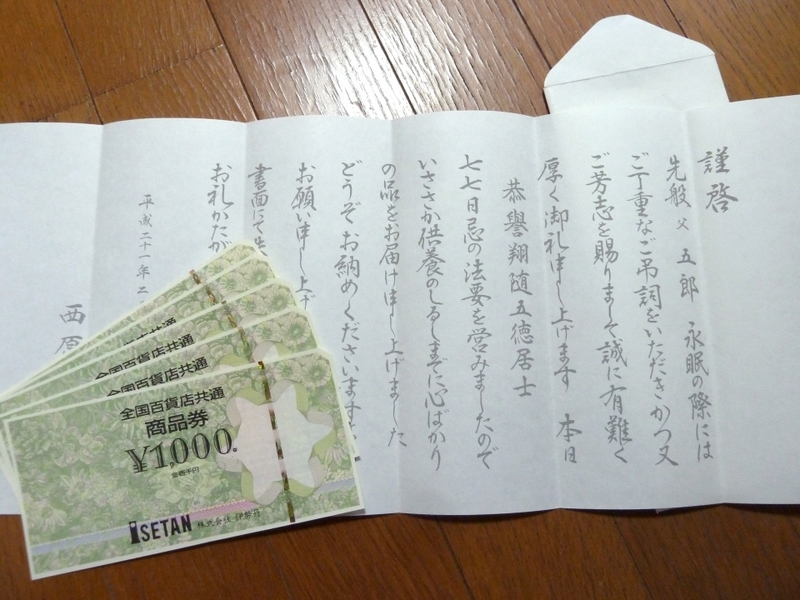 謹啓
先般 父 五郎 永眠の際には
ご丁重なご弔詞をいただきかつ又
ご芳志を賜りまして誠に有難く
厚く御礼申し上げます 本日
恭譽翔随五徳居士
七七日忌の法要を営みましたので
いささか供養のしるしまでに心ばかり
の品をお届け申し上げました
どうぞお納めくださいますよ
お願い申し上げ
書面にて
お礼かたが
平成二十一年二
西原
全国百貨店共通
全国百貨店共通
全国百貨店共通
商品券
¥1,000
金壱千円
ISETAN 株式会社 伊勢丹